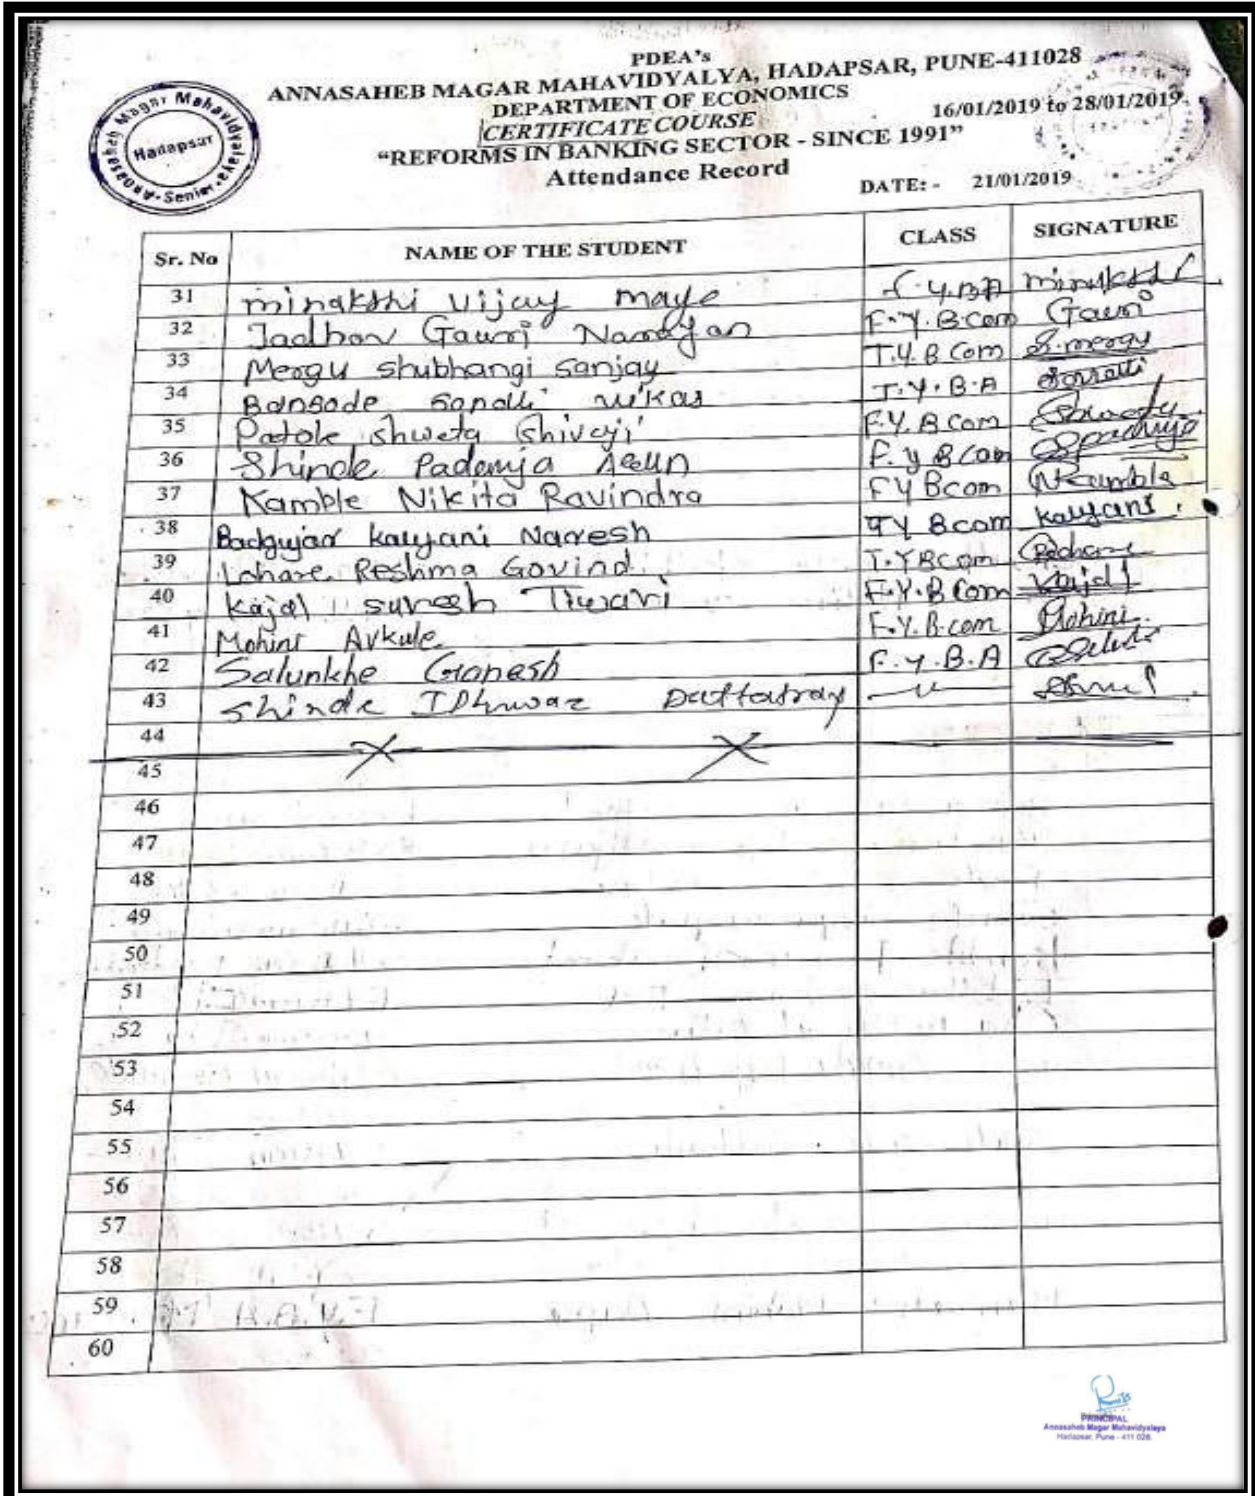 PDEA's
ANNASAHEB MAGAR MAHAVIDYALYA, HADAPSAR, PUNE-411028
DEPARTMENT OF ECONOMICS
16/01/2019 to 28/01/2019
CERTIFICATE COURSE
"REFORMS IN BANKING SECTOR - SINCE 1991"
Attendance Record
DATE: - 21/01/2019
Annasaheb Magar Mahavidyalaya
Hadapsar
Senior
Sr. No NAME OF THE STUDENT CLASS SIGNATURE
31 minakshi vijay maye F.Y.BA minakshi
32 Jadhav Gauri Narayan F.Y. B.Com Gauri
33 Mergu shubhangi sanjay T.Y. B Com S.mergu
34 Bansode vikas T.Y. B.A
35 Patole shweta shivaji F.Y. B Com
36 Shinde Padmja F. y B Com
37 Kamble Nikita Ravindra FY Bcom NKamble
38 Badgujar kalyani Naresh Bcom kalyani
39 Lohare Reshma Govind T.Y BCom
40 Kajal suresh Tiwari F.Y.B Com Kajal
41 Mohini Avkule F.Y. B.com Mohini
42 Salunkhe Ganesh F. y. B.A
43 Shinde Dattatray —〃—
44
45
46
47
48
49
50
51
52
53
54
55
56
57
58
59
60
PRINCIPAL
Annasaheb Magar Mahavidyalaya
Hadapsar, Pune - 411 028.